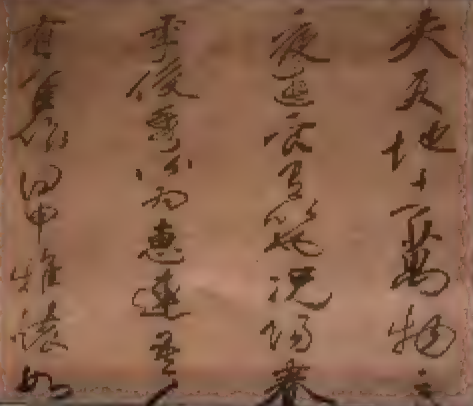 夫天地者萬物之
夜遊良有以也況陽春
季俊秀皆為惠連吾人
有佳作何伸雅懷如